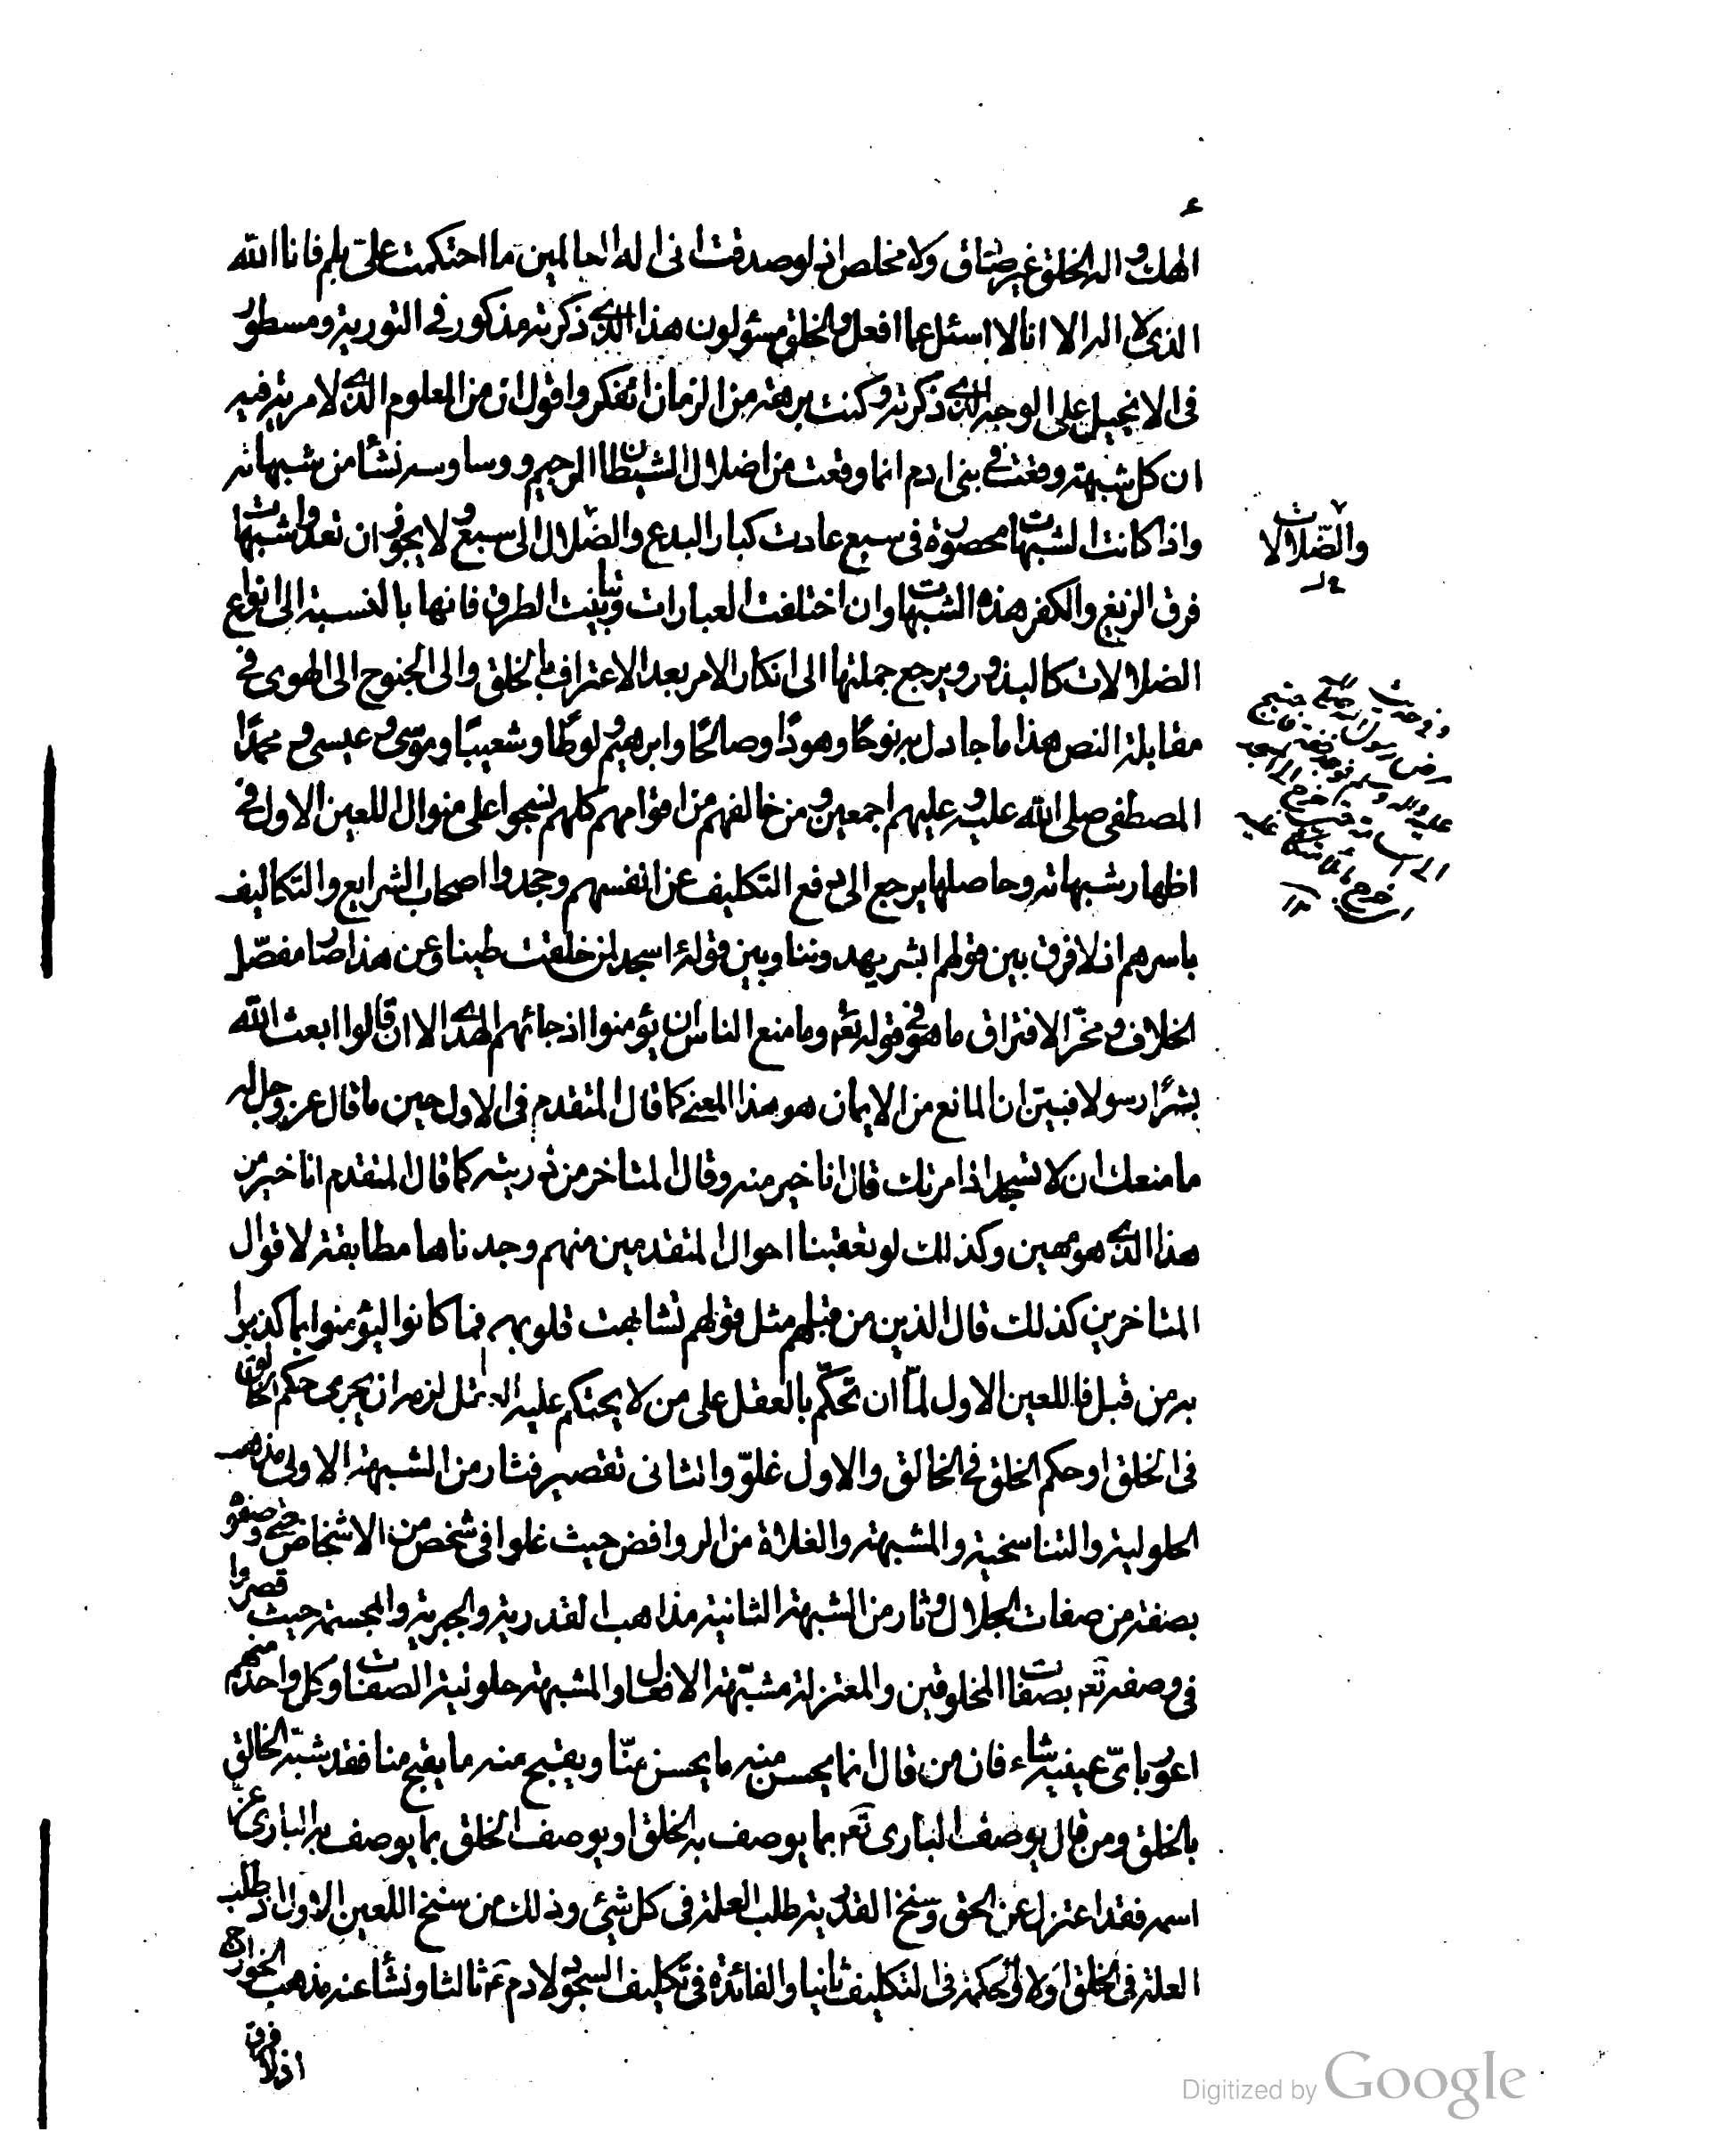 ء
الهك واله الخلق غير صادق ولا مخلص اذ لو صدقت انى اله العالمين ما احتكمت على بلم فانا الله
الذى لا اله الا انا لا اسئل عما افعل والخلق مسئولون هذا الذى ذكرته مذكور فى التورية ومسطور
فى الانجيل على الوجه الذى ذكرته وكنت برهة من الزمان اتفكر واقول ان من المعلوم الذى لا مرية فيه
ان كل شبهة وقعت فى بنى ادم انما وقعت من اضلال الشيطان الرجيم ووساوسه نشأ من شبهاته
واذا كانت الشبهات محصورة فى سبع عادت كبار البدع والضلال الى سبع ولا يجوز ان تعدوا شبهات
فرق الزيغ والكفر هذه الشبهات وان اختلفت العبارات وتباينت الطرق فانها بالنسبة الى انواع
الضلالات كالبذور ويرجع جملتها الى انكار الامر بعد الاعتراف بالخلق والى الجنوح الى الهوى فى
مقابلة النص هذا ما جادل به نوحًا وهودًا وصالحًا وابرهيم ولوطًا وشعيبًا وموسى وعيسى ومحمدًا
المصطفى صلى الله عليه وعليهم اجمعين ومن خالفهم من اقوامهم كلهم نسجوا على منوال اللعين الاول فى
اظهار شبهاته وحاصلها يرجع الى دفع التكليف عن انفسهم وجحدوا اصحاب الشرايع والتكاليف
باسرهم اذ لا فرق بين قولهم ابشر يهدوننا وبين قوله ءاسجد لمن خلقت طينا وعن هذا صار مفصّل
الخلاف ومحزّ الافتراق ما هو فى قوله تعه وما منع الناس ان يؤمنوا اذ جائهم الهدى الا ان قالوا ابعث الله
بشرًا رسولا فبين ان المانع من الايمان هو هذا المعنى كما قال المتقدم فى الاول حين ما قال عز وجل له
ما منعك ان لا تسجد اذ امرتك قال انا خير منه وقال المتاخر من ذريته كما قال المتقدم انا خير من
هذا الذى هو مهين وكذلك لو تعقبنا احوال المتقدمين منهم وجدناها مطابقة لاقوال
المتاخرين كذلك قال الذين من قبلهم مثل قولهم تشابهت قلوبهم فما كانوا ليؤمنوا بما كذبوا
به من قبل فاللعين الاول لمّا ان تحكّم بالعقل على من لا يحتكم عليه العقل لزمه ان يجرى حكم الخالق
فى الخلق او حكم الخلق فى الخالق والاول غلوّ والثانى تقصير فثار من الشبهة الاولى مذاهب
الحلولية والتناسخية والمشبهة والغلاة من الروافض حيث غلوا فى شخص من الاشخاص حتى وصفوه
بصفة من صفات الجلال وثار من الشبهة الثانية مذاهب القدرية والجبرية والمجسمة حيث قصروا
فى وصفه تعه بصفات المخلوقين والمعتزلة مشبّهة الافعال والمشبهة حلولية الصفات وكل واحد منهم
اعور باىّ عينيه شاء فان من قال انما يحسن منه ما يحسن منّا ويقبح منه ما يقبح منا فقد شبّه الخالق
بالخلق ومن قال يوصف البارى تعه بما يوصف به الخلق او يوصف الخلق بما يوصف به البارى عز
اسمه فقد اعتزل عن الحق وسنخ القدرية طلب العلة فى كل شئ وذلك من سنخ اللعين الاول اذ طلب
العلة فى الخلق اولا والحكمة فى التكليف ثانيا والفائدة فى تكليف السجود لادم ع ثالثا ونشأ عنه مذهب الخوارج
اذ لا فرق
والضّلالات